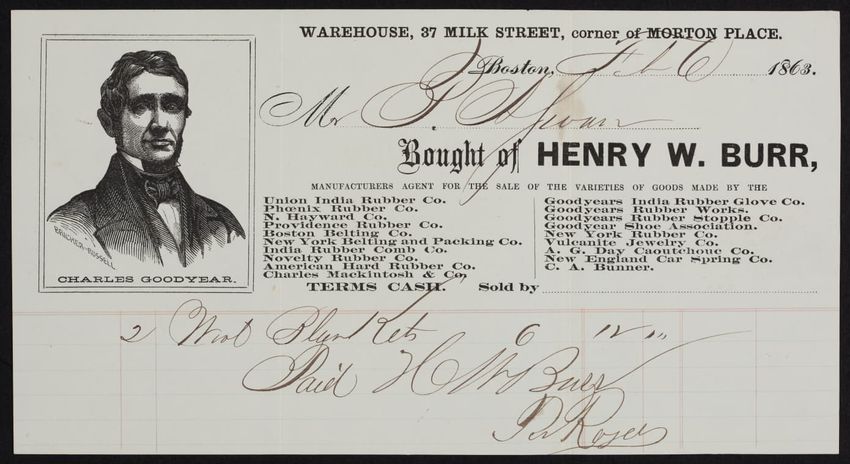 WAREHOUSE, 37 MILK STREET, corner of MORTON PLACE.
Boston, Feb 6 1863.
Mr P. Swan
Bought of HENRY W. BURR,
MANUFACTURERS AGENT FOR THE SALE OF THE VARIETIES OF GOODS MADE BY THE
Union India Rubber Co.
Phœnix Rubber Co.
N. Hayward Co.
Providence Rubber Co.
Boston Belting Co.
New York Belting and Packing Co.
India Rubber Comb Co.
Novelty Rubber Co.
American Hard Rubber Co.
Charles Mackintosh & Co.
Goodyears India Rubber Glove Co.
Goodyears Rubber Works.
Goodyears Rubber Stopple Co.
Goodyear Shoe Association.
New York Rubber Co.
Vulcanite Jewelry Co.
A. G. Day Caoutchouc Co.
New England Car Spring Co.
C. A. Bunner.
TERMS CASH. Sold by
BRICHER-RUSSELL
CHARLES GOODYEAR.
2 Wool Blankets 6 12 "
Paid H W Burr
Per